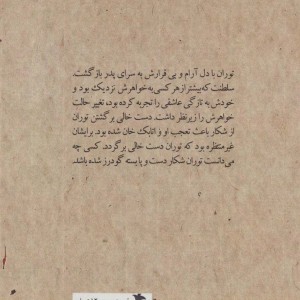 توران با دل آرام و بی قرارش به سرای پدر بازگشت.
سلطنت که بیشتر از هر کسی به خواهرش نزدیک بود و
خودش به تازگی عاشقی را تجربه کرده بود، تغییر حالت
خواهرش را زیر نظر داشت. دست خالی برگشتن توران
از شکار باعث تعجب او و اتابک خان شده بود. برایشان
غیر منتظره بود که توران دست خالی برگردد. کسی چه
می‌دانست توران شکار دست و پابسته گودرز شده باشد.